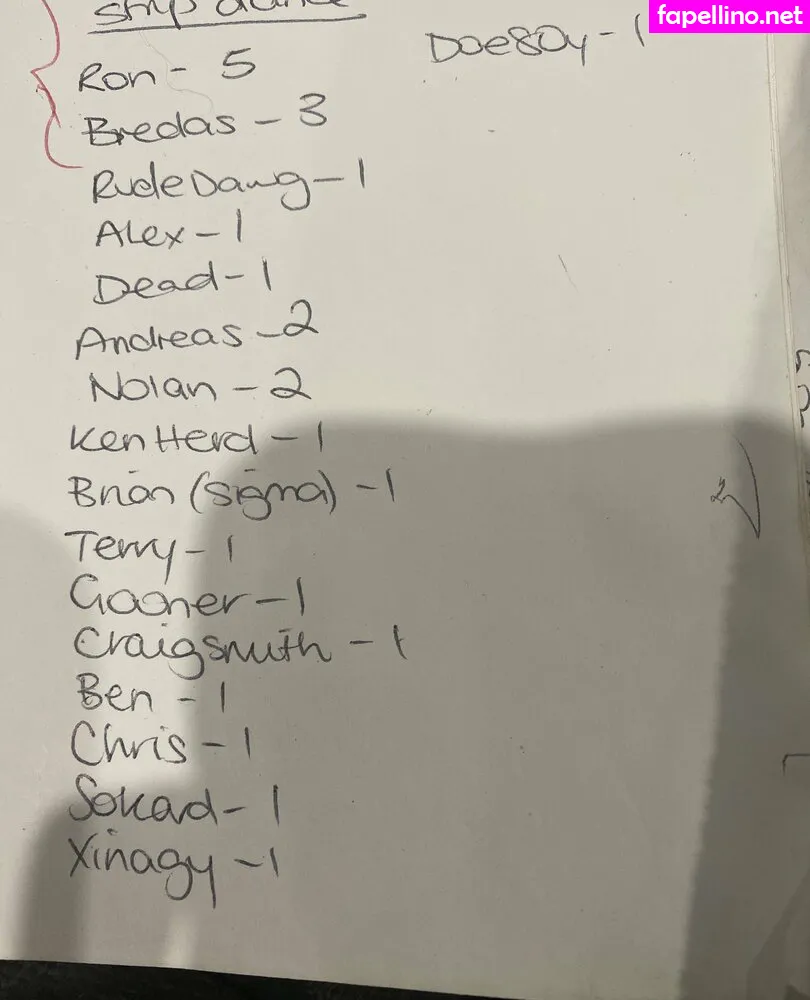 fapellino.net
strip dance
Doe80y - 1
Ron - 5
Bredas - 3
RudeDawg - 1
Alex - 1
Dead - 1
Andreas - 2
Nolan - 2
Ken Herd - 1
Brian (sigma) - 1
Terry - 1
Gooner - 1
Craigsmith - 1
Ben - 1
Chris - 1
Sokad - 1
Xinagy - 1